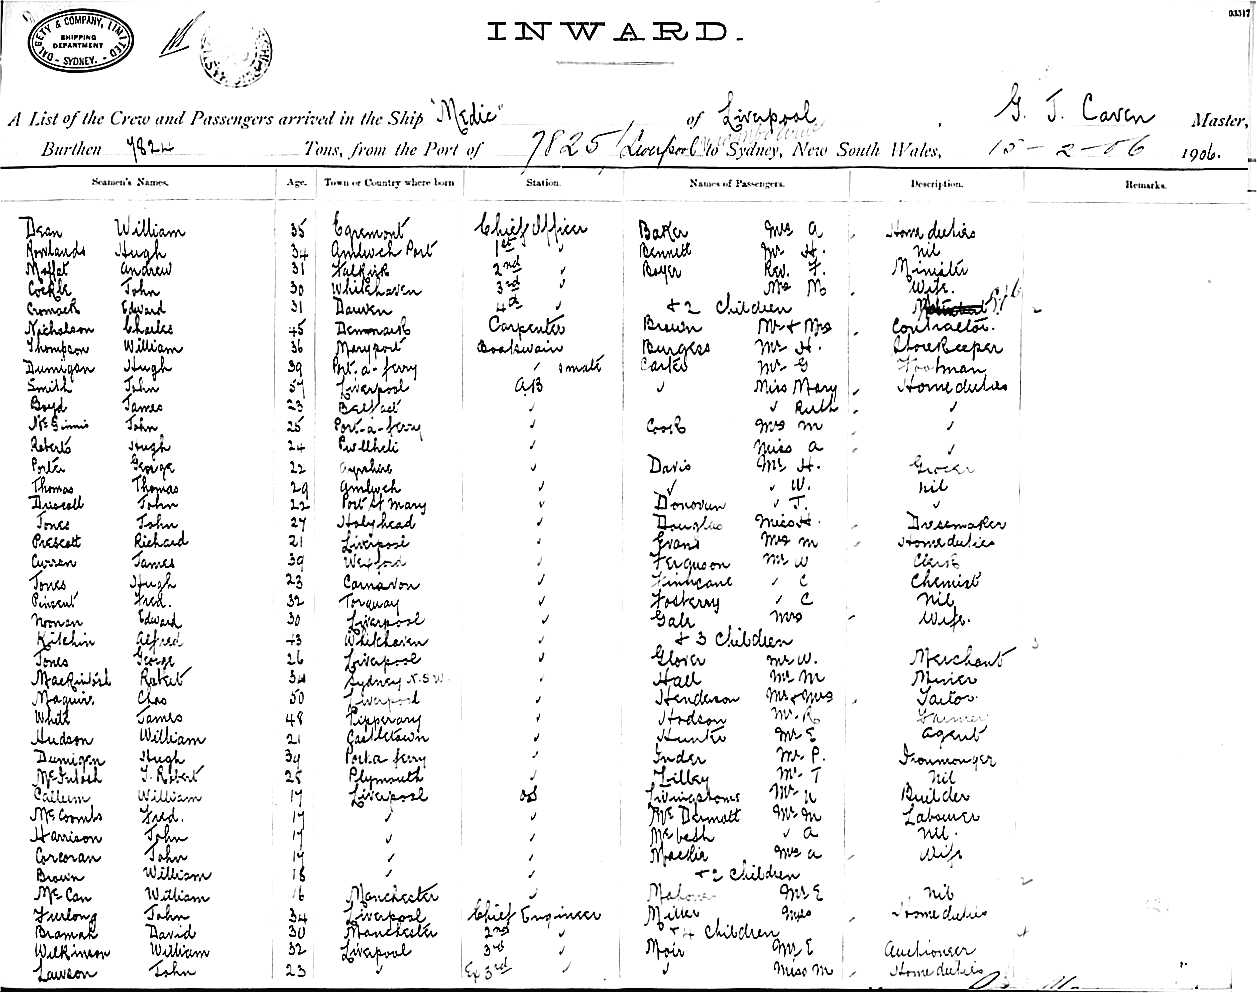 03517
DALGETY & COMPANY, LIMITED
SHIPPING
DEPARTMENT
- SYDNEY. -
INWARD.
A List of the Crew and Passengers arrived in the Ship "Medic" of Liverpool, G. J. Caven Master,
Burthen 7824 Tons, from the Port of 7825/ Liverpool to Sydney, New South Wales, 15-2-06 1906.
Seamen's Names. Age. Town or Country where born Station. Names of Passengers. Description. Remarks.
Dean William 35 Egremont Chief Officer Baker Mrs A Home duties
Rowlands Hugh 34 Amlwch Port 1st ✓ Bennett Mr H. nil
Moffet Andrew 31 Falkirk 2nd ✓ Boyer Rev. F. Minister
Cocker John 30 Whitehaven 3rd ✓ Mrs M Wife.
Cromack Edward 31 Darwen 4th ✓ + 2 Children 2
Nicholson Charles 45 Denmark Carpenter Brown Mr + Mrs Contractor.
Thompson William 36 Maryport Boatswain Burgess Mr H. Storekeeper
Dumigan Hugh 39 Port-a-ferry ✓ smate Carter Mr G Footman
Smith John 57 Liverpool AB ✓ Miss Mary Home duties
Boyd James 23 Belfast ✓ ✓ Ruth ✓
McGinnis John 25 Port-a-ferry ✓ Cook Mrs M ✓
Roberts Hugh 24 Pwllheli ✓ Miss A ✓
Porter George 22 Ayrshire ✓ Davis Mr H. Grocer
Thomas Thomas 29 Amlwch ✓ ✓ ✓ W. nil
Driscoll John 22 Port St Mary ✓ Donovan ✓ J. ✓
Jones John 27 Holyhead ✓ Douglas Miss H. Dressmaker
Prescott Richard 21 Liverpool ✓ Evans Mrs M Home duties
Curren James 39 Wexford ✓ Ferguson Mr W Clerk
Jones Hugh 23 Carnarvon ✓ Finncane ✓ C Chemist
Pincent Fred. 32 Torquay ✓ Fosberry ✓ C Nil
Noonan Edward 30 Liverpool ✓ Gale Mrs Wife.
Kitchin Alfred 43 Whitehaven ✓ + 3 Children 3
Jones George 26 Liverpool ✓ Glover Mr W. Merchant
Mackintosh Robert 34 Sydney N.S.W. ✓ Hall Mr M Miner
Maguire Chas 50 Liverpool ✓ Henderson Mr + Mrs Tailor
White James 48 Tipperary ✓ Hodson Mr R Farmer
Hudson William 21 Castletown ✓ Hunter Mr E Agent
Dumigan Hugh 39 Port-a-ferry ✓ Inder Mr P. Ironmonger
McIntosh J. Robert 25 Plymouth ✓ Lilley Mr T nil
William 17 Liverpool OS Livingstone Mr Builder
McCoombs Fred. 17 ✓ ✓ McDermott Mr M Labourer
Harrison John 17 ✓ ✓ McBeth ✓ A Nil.
Corcoran John 17 ✓ ✓ Mackie Mrs A Wife
Brown William 18 ✓ ✓ + 2 Children 2
McCan William 16 Manchester ✓ Mahone Mr E nil
Furlong John 34 Liverpool Chief Engineer Miller Mrs Home duties
Bramah David 30 Manchester 2nd ✓ + 4 Children 4
Wilkinson William 32 Liverpool 3rd ✓ Moir Mr E Auctioneer
Lawson John 23 ✓ Ex 3rd ✓ ✓ Miss M Home duties